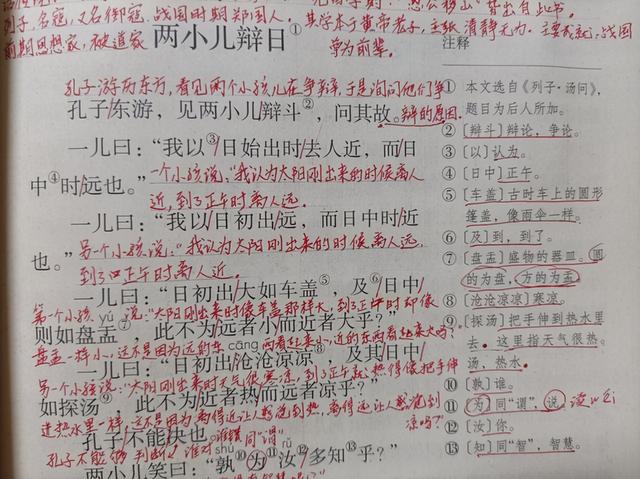 列子,名寇,又名御寇,战国时期郑国人。其学本于黄帝老子,主张清静无为。
前期思想家,被道家尊为前辈。
两小儿辩日①
孔子游历东方,看见两个小孩儿在争辩,于是询问他们争
孔子/东游,见两小儿辩斗②,问其故。辩的原因。
一儿曰:“我以③/日始出时/去人近,而/日
中④时/远也。”一个小孩说:“我认为太阳刚出来的时候离人
近,到了正午时离人远。
一儿曰:“我以/日初出/远,而日中时/近
也。”另一个小孩说:“我认为太阳刚出来的时候离人远,
到了正午时离人近。
一儿曰:“日初出/大如车盖⑤,及⑥/日中/
第一个小孩说:“太阳刚出来时像车盖那样大,到了正中时却像
则如盘盂⑦,此不为/远者小/而近者大乎?”
yú
盘盂一样小,这不是因为远的东西看起来小,近的东西看起来大吗?
cāng
一儿曰:“日初出/沧沧凉凉⑧,及其日中
另一个小孩说:“太阳刚出来时天气很寒凉,到了正午就热得像把手伸
如探汤⑨,此不为近者热/而远者凉乎?”
进热水里一样,这不是因为离得近让人感觉到热,离得远让人感觉到
凉吗?
孔子/不能决也。
孔子不能够判断谁对
shú
同“谓”
rǔ
两小儿笑曰:“孰⑩/为⑪汝⑫/多知⑬乎?”
注释
① 本文选自《列子·汤问》,
题目为后人所加。
② [辩斗]辩论,争论。
③ [以]认为。
④ [日中]正午。
⑤ [车盖]古时车上的圆形
篷盖,像雨伞一样。
⑥ [及]到,到了。
⑦ [盘盂]盛物的器皿。圆
的为盘,方的为盂。
⑧ [沧沧凉凉]寒凉。
⑨ [探汤]把手伸到热水里
去。这里指天气很热。
汤,热水。
⑩ [孰]谁。
⑪ [为]同“谓”,说。
⑫ [汝]你。
⑬ [知]同“智”,智慧。